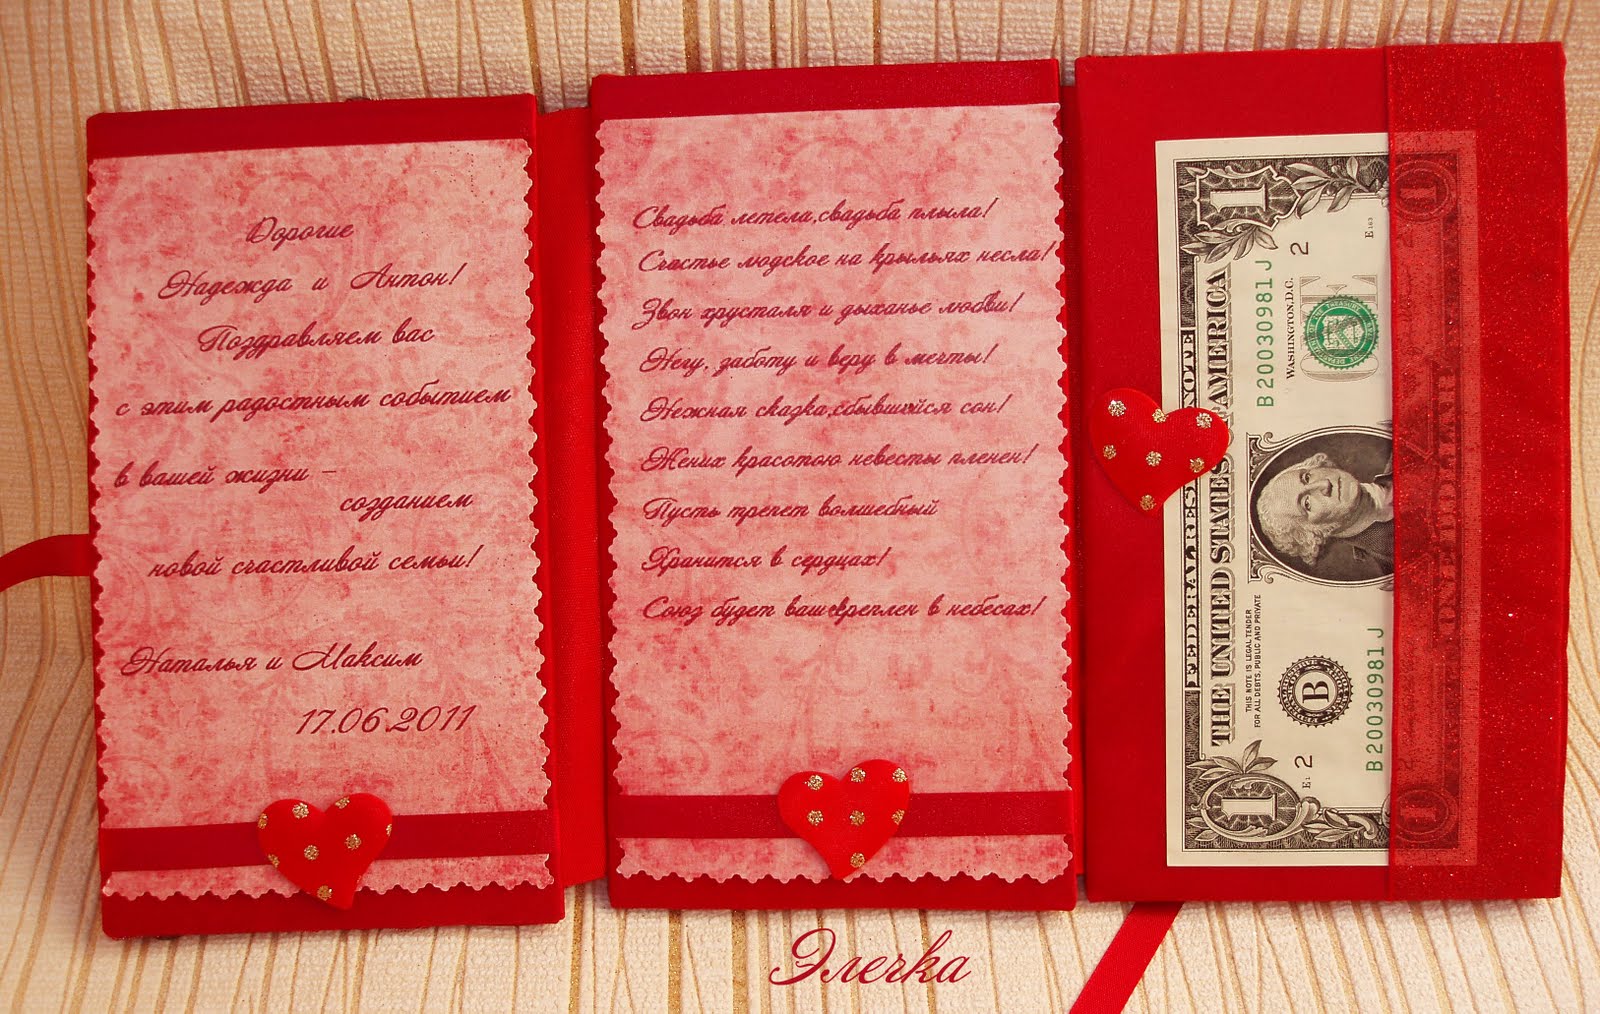 Дорогие
Надежда и Антон!
Поздравляем вас
с этим радостным событием
в вашей жизни –
созданием
новой счастливой семьи!
Наталья и Максим
17.06.2011
Свадьба летела,свадьба плыла!
Счастье людское на крыльях несла!
Звон хрусталя и дыханье любви!
Негу, заботу и веру в мечты!
Нежная сказка,сбывшийся сон!
Жених красотою невесты пленен!
Пусть трепет волшебный
Хранится в сердцах!
Союз будет ваш креплен в небесах!
FEDERAL RESERVE NOTE
THE UNITED STATES OF AMERICA
THIS NOTE IS LEGAL TENDER
FOR ALL DEBTS, PUBLIC AND PRIVATE
B20030981J
WASHINGTON, D.C.
B
B20030981J
2
2
1
1
1
1
ONE DOLLAR
Элечка